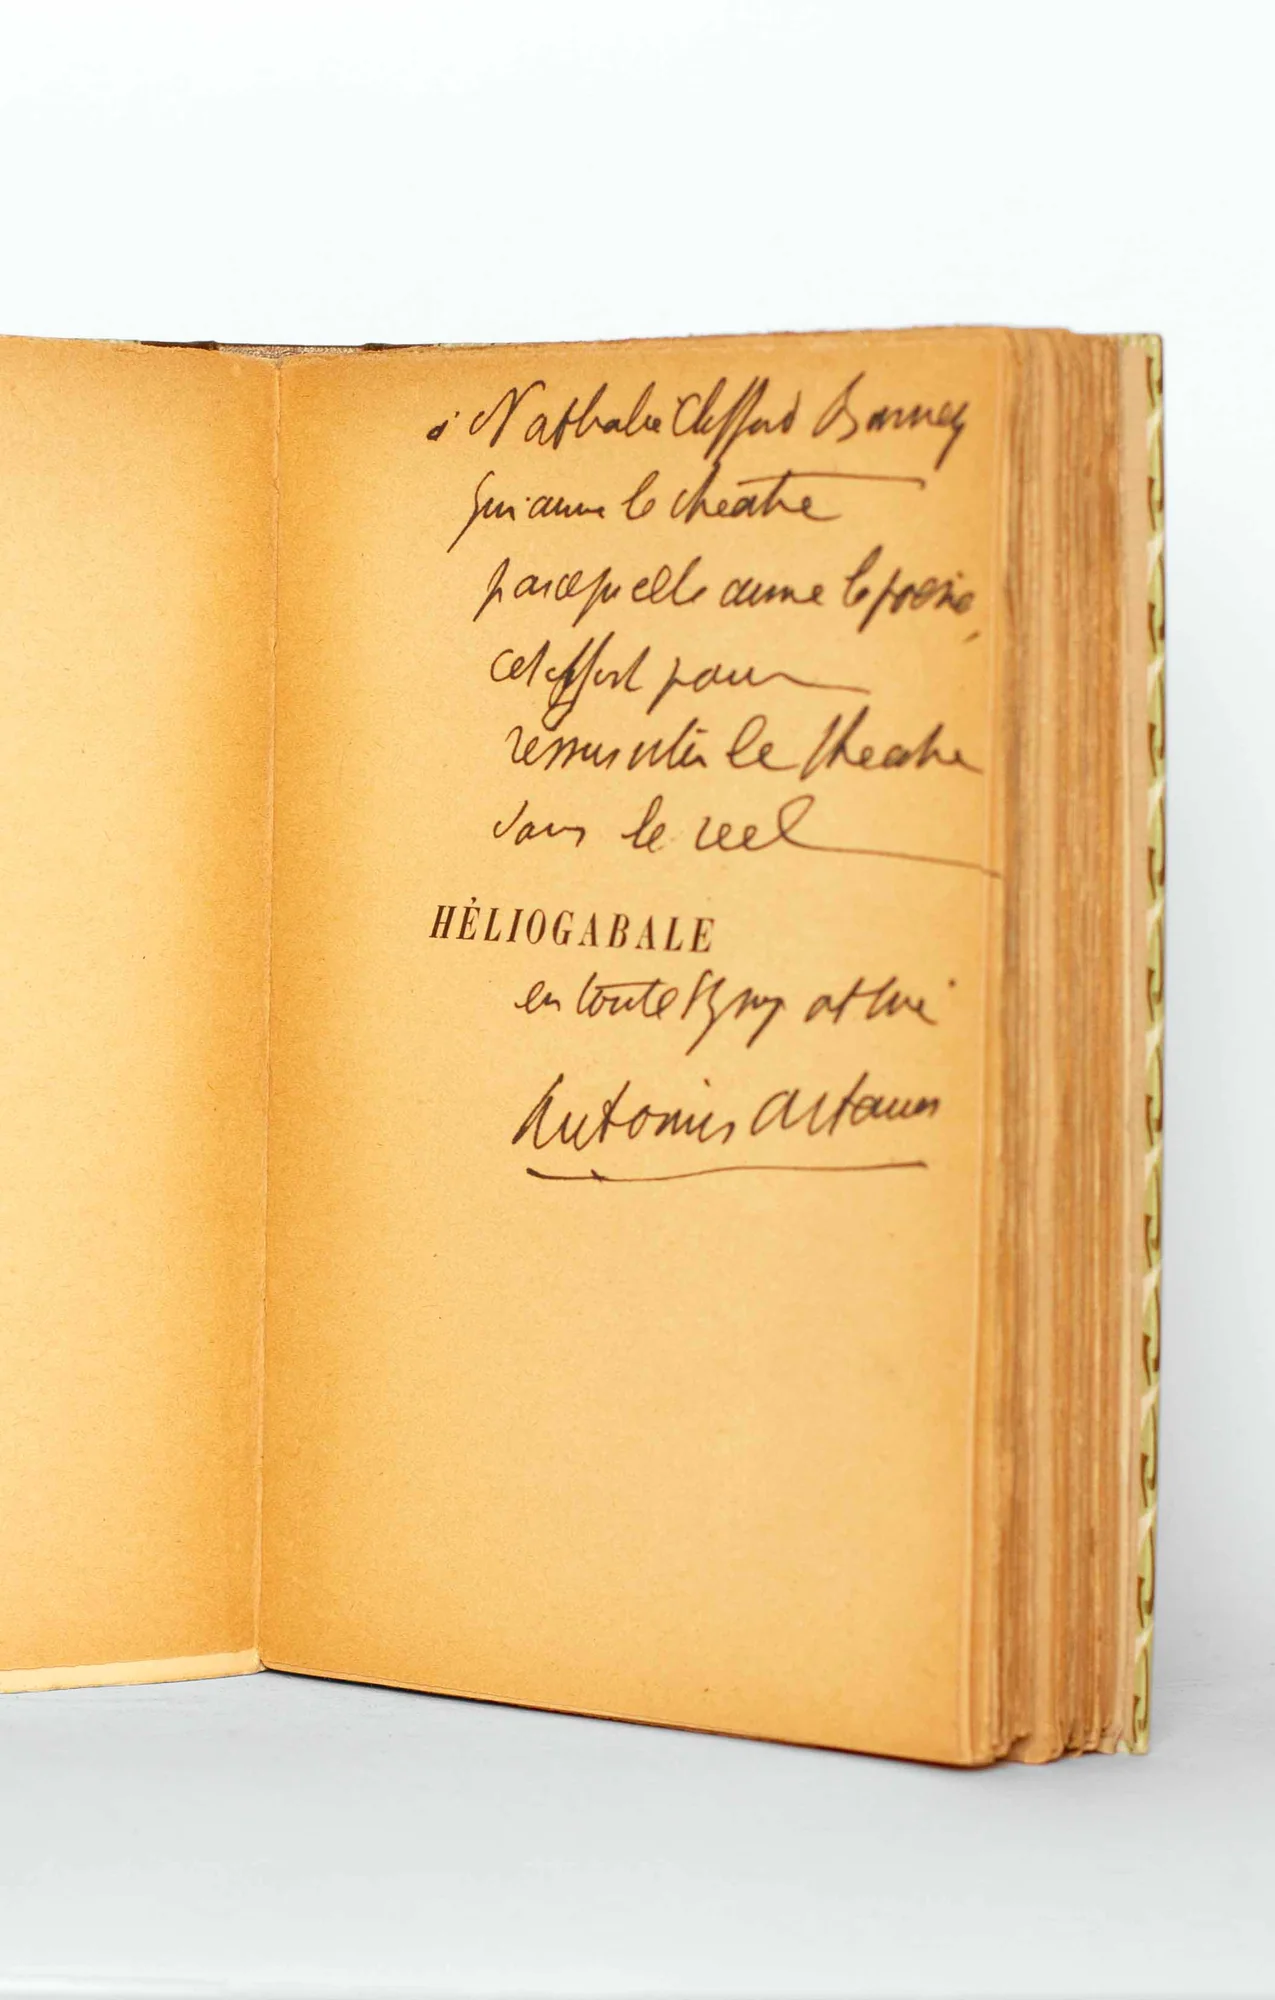 à Nathalie Clifford Barney
qui aime le theatre
parcequ'elle aime la poesie,
cet effort pour
ressusciter le theatre
dans le reel
HÉLIOGABALE
en toute sympathie
Antonin Artaud